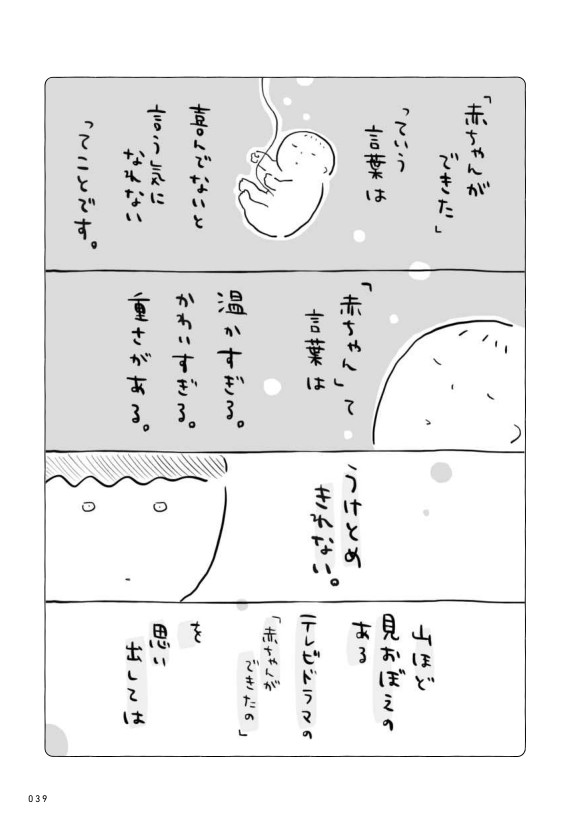 「赤ちゃんが
できた」
っていう
言葉は
喜んでないと
言う気に
なれない
ってことです。
「赤ちゃん」て
言葉は
温かすぎる。
かわいすぎる。
重さがある。
うけとめ
きれない。
山ほど
見おぼえの
ある
テレビドラマの
「赤ちゃんが
できたの」
を
思い
出しては
039